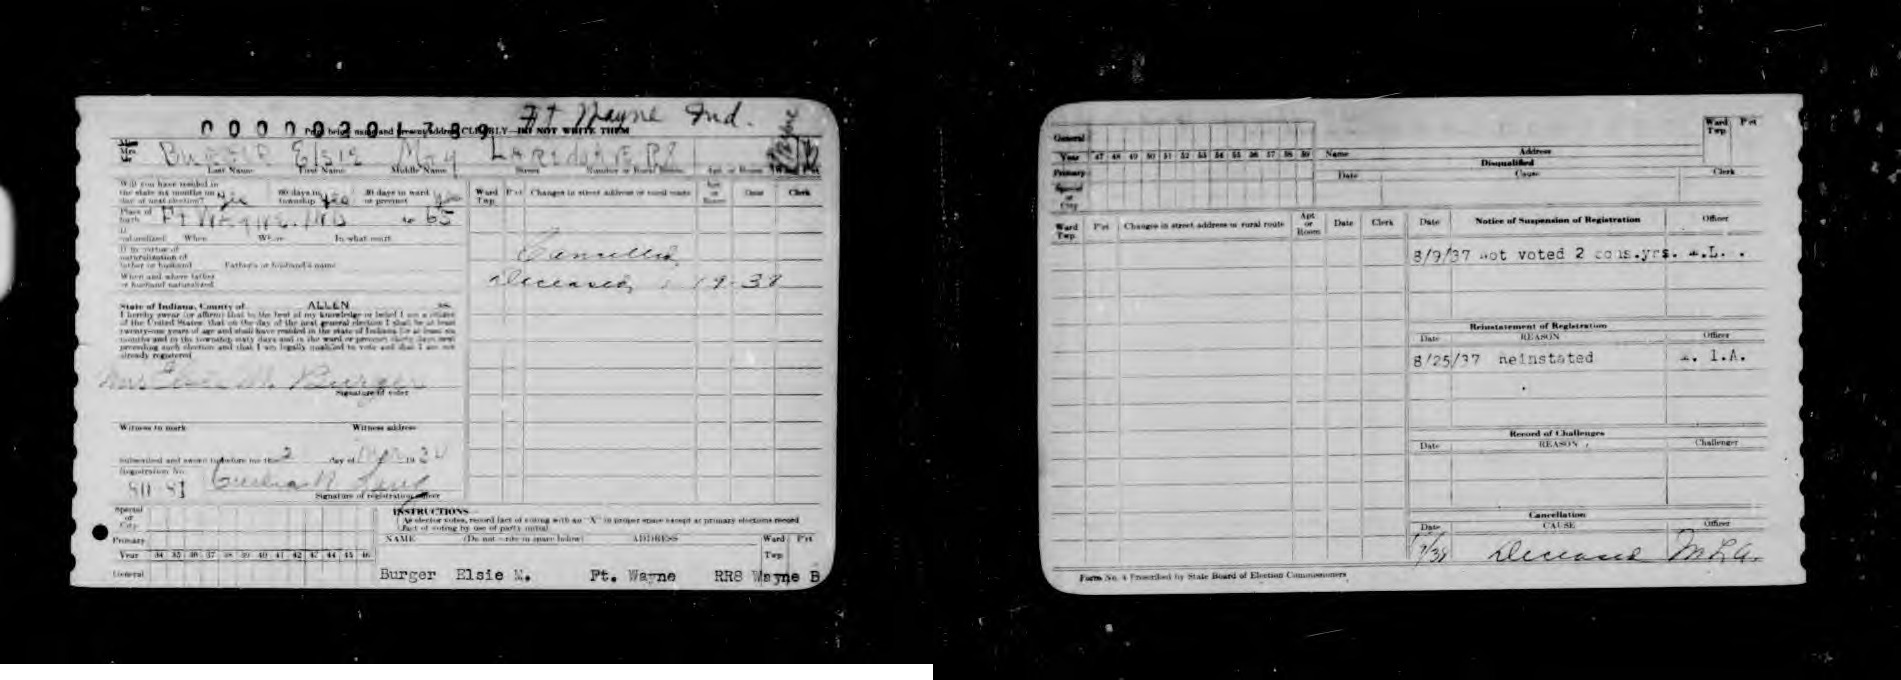 Ft Wayne Ind.
0000201789
Print below name and present address CLEARLY—DO NOT WRITE THEM
Miss
Mrs.
Mr.
Burger Elsie May
Last Name First Name Middle Name Street Number or Rural Route Apt or Room Ward Twp Pct
Will you have resided in the state six months on day of next election? yes 60 days in township yes 30 days in ward or precinct yes
Place of birth Ft Wayne. IND 65
If naturalized When Where In what court
If by virtue of naturalization of father or husband Father's or husband's name
When and where father or husband naturalized
State of Indiana, County of ALLEN ss.
I hereby swear (or affirm) that to the best of my knowledge or belief I am a citizen
of the United States; that on the day of the next general election I shall be at least
twenty-one years of age and shall have resided in the state of Indiana for at least six
months and in the township sixty days and in the ward or precinct thirty days next
preceding such election and that I am legally qualified to vote and that I am not
already registered
Mrs Elsie M. Burger
Signature of voter
Witness to mark Witness address
Subscribed and sworn to before me this 2 day of 19 34
Registration No.
Signature of registration officer
Ward Twp Pct Changes in street address or rural route Apt or Room Date Clerk
Cancelled
Deceased
INSTRUCTIONS
As elector votes, record fact of voting with an "X" in proper space except at primary elections record
fact of voting by use of party initial
Special or City
Primary
Year 34 35 36 37 38 39 40 41 42 43 44 45 46
General
NAME (Do not write in space below) ADDRESS Ward Twp Pct
Burger Elsie M. Ft. Wayne RR8 Wayne B
General
Year 47 48 49 50 51 52 53 54 55 56 57 58 59
Primary
Special or City
Name Address Ward Twp Pct
Disqualified
Date Cause Clerk
Ward Twp Pct Changes in street address or rural route Apt or Room Date Clerk
Date Notice of Suspension of Registration Officer
8/9/37 not voted 2 cons.yrs.
Reinstatement of Registration
Date REASON Officer
8/25/37 Reinstated
Record of Challenges
Date REASON Challenger
Cancellation
Date CAUSE Officer
Deceased M.L.A.
Form No. 4 Prescribed by State Board of Election Commissioners